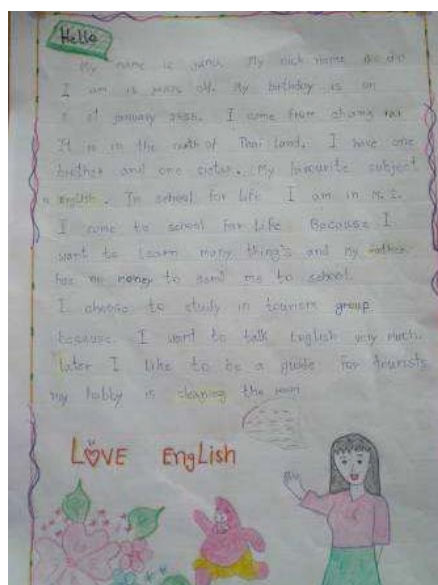 Hello
My name is My nick name
I am years old. My birthday is on
of january I come from chang rai
It is in the north of Thai Land. I have one
brother and one sister. My favourite subject
is English. In school for life I am in M. 2.
I came to school for Life Because I
want to learn many thing's and my father
has no money to send me to school.
I choose to study in tourism group
because I want to talk English very much.
later I like to be a guide for tourists
my hobby is cleaning the room
LOVE EngLish